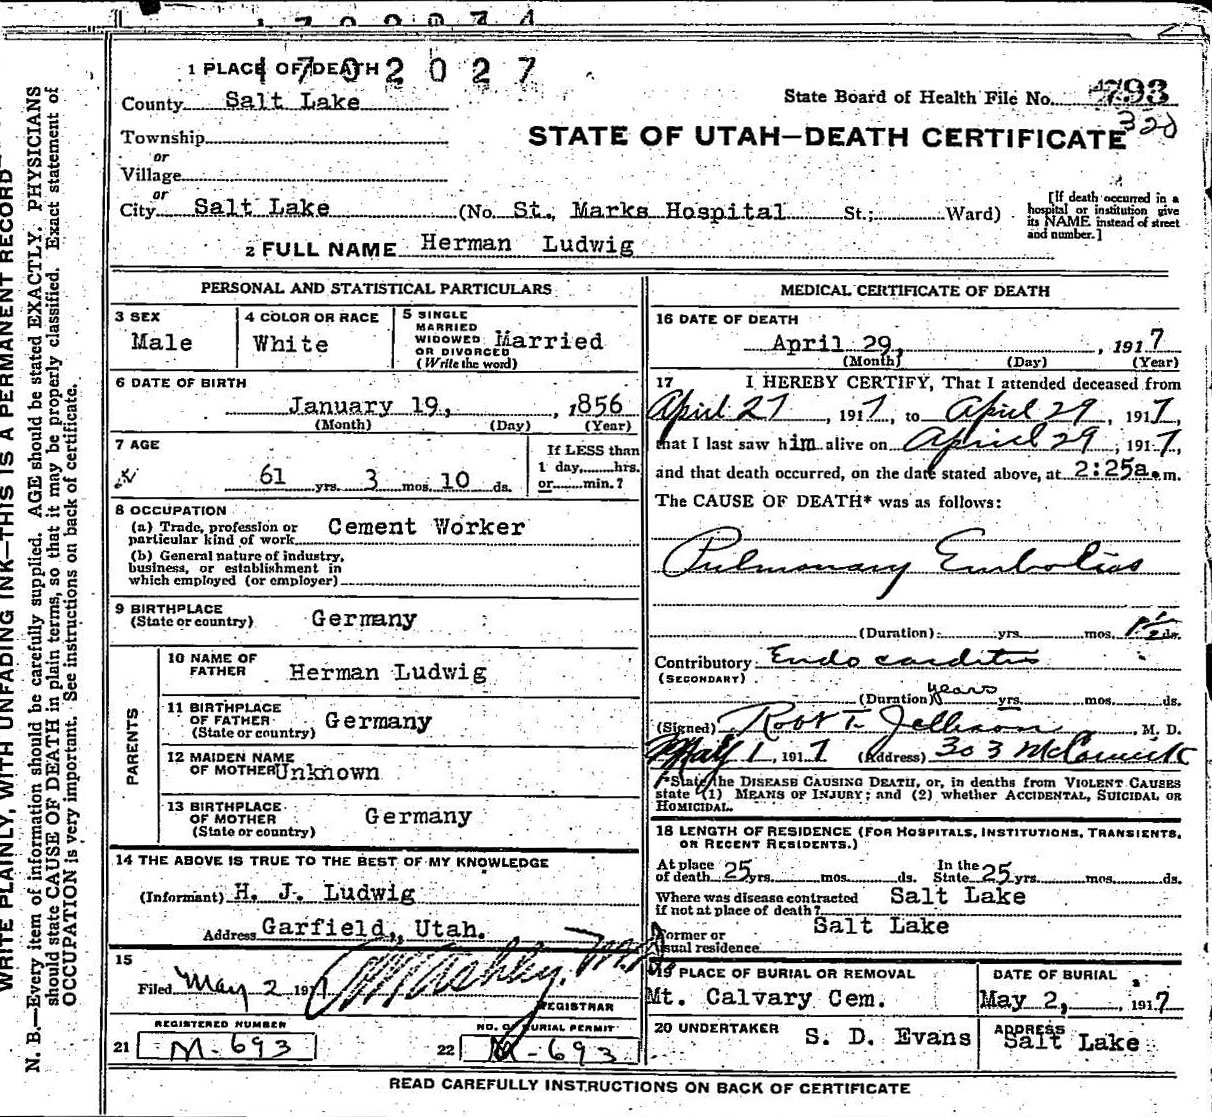 1702027
1 PLACE OF DEATH
County Salt Lake
State Board of Health File No. 793
320
Township
or
Village
or
STATE OF UTAH—DEATH CERTIFICATE
City Salt Lake (No. St., Marks Hospital St.; Ward)
[If death occurred in a
hospital or institution give
its NAME instead of street
and number.]
2 FULL NAME Herman Ludwig
PERSONAL AND STATISTICAL PARTICULARS
3 SEX
Male
4 COLOR OR RACE
White
5 SINGLE
MARRIED
WIDOWED
OR DIVORCED
(Write the word)
Married
6 DATE OF BIRTH
January 19, , 1856
(Month) (Day) (Year)
7 AGE
61 yrs. 3 mos. 10 ds.
If LESS than
1 day, hrs.
or min.?
8 OCCUPATION
(a) Trade, profession or
particular kind of work Cement Worker
(b) General nature of industry,
business, or establishment in
which employed (or employer)
9 BIRTHPLACE
(State or country) Germany
PARENTS
10 NAME OF
FATHER Herman Ludwig
11 BIRTHPLACE
OF FATHER
(State or country) Germany
12 MAIDEN NAME
OF MOTHER Unknown
13 BIRTHPLACE
OF MOTHER
(State or country) Germany
14 THE ABOVE IS TRUE TO THE BEST OF MY KNOWLEDGE
(Informant) H. J. Ludwig
Address Garfield, Utah.
15
Filed May 2 1917
REGISTRAR
REGISTERED NUMBER
21 M-693
NO. OF BURIAL PERMIT
22 M-693
MEDICAL CERTIFICATE OF DEATH
16 DATE OF DEATH
April 29, , 1917
(Month) (Day) (Year)
17 I HEREBY CERTIFY, That I attended deceased from
April 27, 1917, to April 29, 1917,
that I last saw him alive on April 29, 1917,
and that death occurred, on the date stated above, at 2:25a.m.
The CAUSE OF DEATH* was as follows:
Pulmonary Embolius
(Duration) yrs. mos. 1 1/2 ds.
Contributory Endo carditis
(SECONDARY)
(Duration) years yrs. mos. ds.
(Signed) Robt T. Jellison, M. D.
May 1, 1917 (Address) 303 McCornick
*State the DISEASE CAUSING DEATH, or, in deaths from VIOLENT CAUSES
state (1) MEANS OF INJURY; and (2) whether ACCIDENTAL, SUICIDAL OR
HOMICIDAL.
18 LENGTH OF RESIDENCE (FOR HOSPITALS, INSTITUTIONS, TRANSIENTS,
OR RECENT RESIDENTS.)
At place
of death 25 yrs. mos. ds.
In the
State 25 yrs. mos. ds.
Where was disease contracted
if not at place of death? Salt Lake
Former or
usual residence Salt Lake
19 PLACE OF BURIAL OR REMOVAL
Mt. Calvary Cem.
DATE OF BURIAL
May 2, 1917
20 UNDERTAKER
S. D. Evans
ADDRESS
Salt Lake
READ CAREFULLY INSTRUCTIONS ON BACK OF CERTIFICATE
WRITE PLAINLY, WITH UNFADING INK—THIS IS A PERMANENT RECORD
N. B.—Every item of information should be carefully supplied. AGE should be stated EXACTLY. PHYSICIANS
should state CAUSE OF DEATH in plain terms, so that it may be properly classified. Exact statement of
OCCUPATION is very important. See instructions on back of certificate.